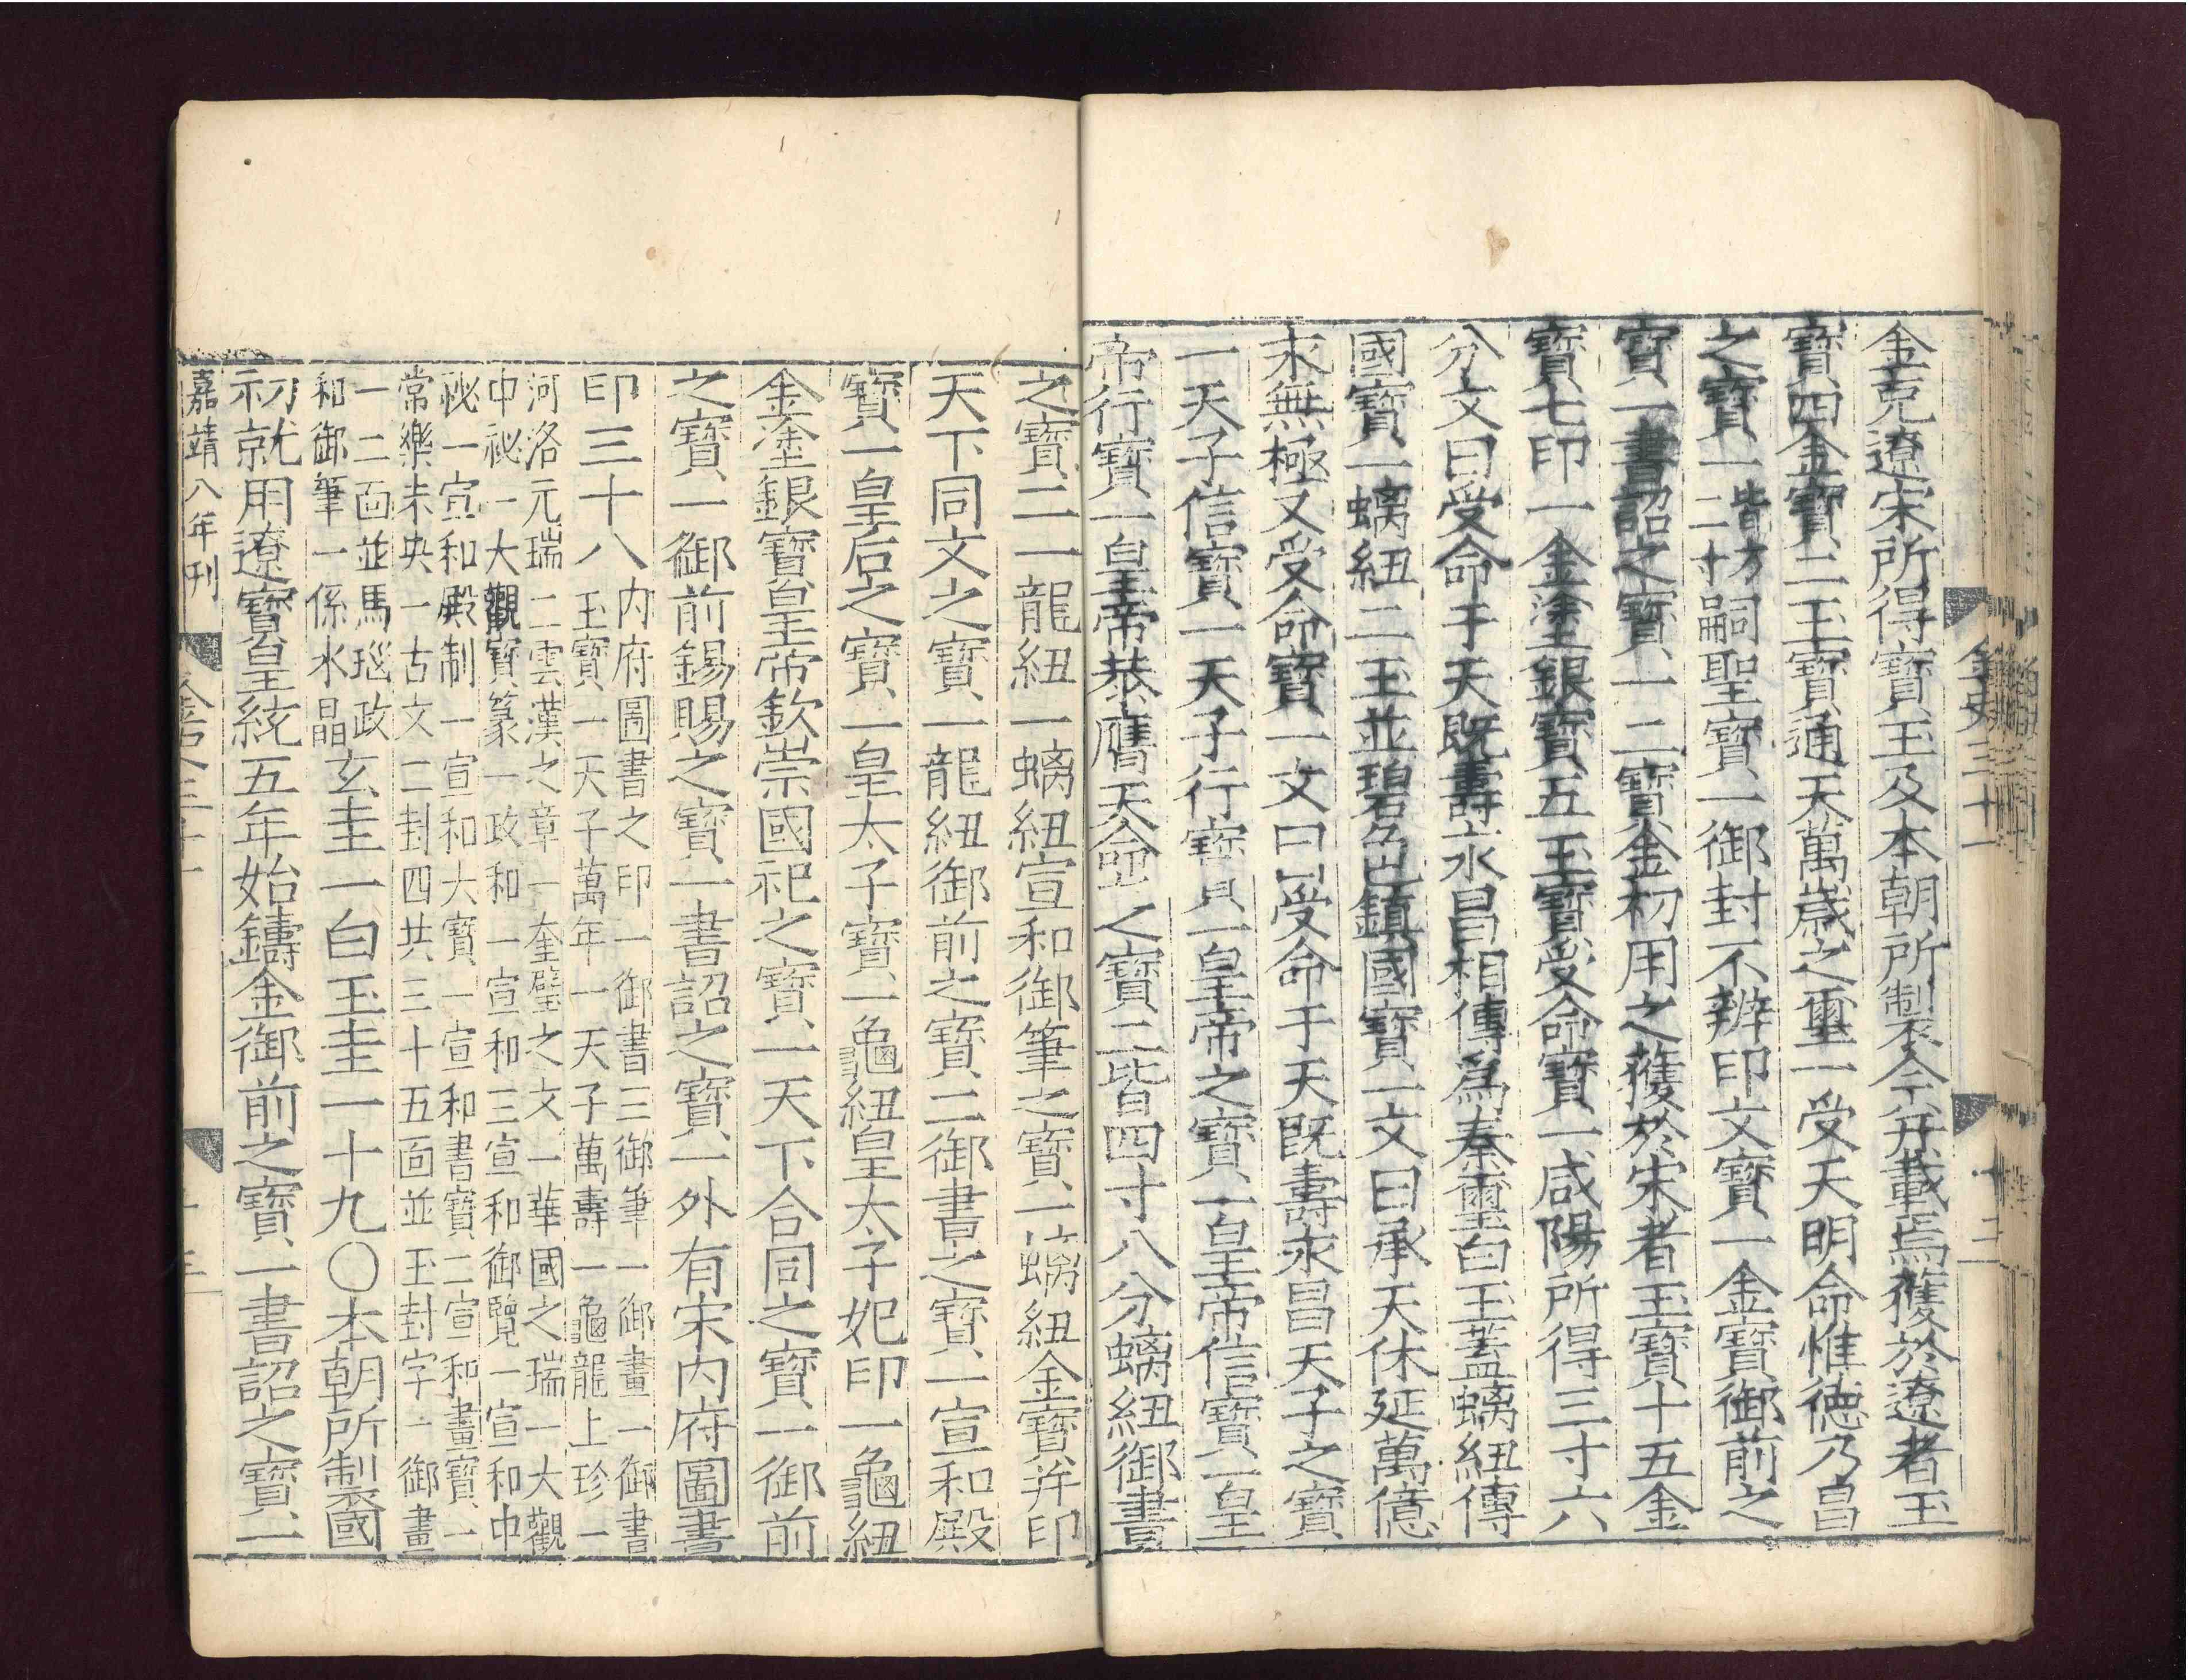 金克遼宋所得寶玉及本朝所製今并載焉獲於遼者玉
寶四金寶二玉寶通天萬歲之璽一受天明命惟德乃昌
之寶一皆方二寸嗣聖寶一御封不辨印文寶一金寶御前之
寶一書詔之寶一二寶金初用之獲於宋者玉寶十五金
寶七印一金塗銀寶五玉寶受命寶一咸陽所得三寸六
分文曰受命于天既壽永昌相傳爲秦璽白玉蓋螭紐傳
國寶一螭紐二玉並碧色鎮國寶一文曰承天休延萬億
永無極又受命寶一文曰受命于天既壽永昌天子之寶
一天子信寶一天子行寶一皇帝之寶一皇帝信寶一皇
帝行寶一皇帝恭膺天命之寶二皆四寸八分螭紐御書
金史三十一
十二
之寶二一龍紐一螭紐宣和御筆之寶一螭紐金寶并印
天下同文之寶一龍紐御前之寶二御書之寶一宣和殿
寶一皇后之寶一皇太子寶一龜紐皇太子妃印一龜紐
金塗銀寶皇帝欽崇國祀之寶一天下合同之寶一御前
之寶一御前錫賜之寶一書詔之寶一外有宋内府圖書
印三十八
内府圖書之印一御書三御筆一御畫一御書
玉寶一天子萬年一天子萬壽一龜龍上珍一
河洛元瑞二雲漢之章一奎璧之文一華國之瑞一大觀
中祕一大觀寶篆一政和一宣和三宣和御覽一宣和中
祕一宣和殿制一宣和大寶一宣和書寶二宣和畫寶一
常樂未央一古文二封四共三十五面並玉封字一御畫
一二面並馬瑙政
和御筆一係水晶
玄圭一白玉圭一十九〇本朝所製國
初就用遼寶皇統五年始鑄金御前之寶一書詔之寶一
嘉靖八年刊